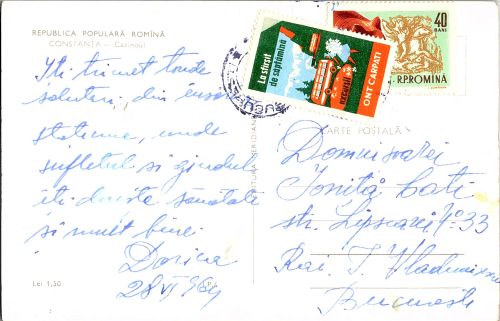 REPUBLICA POPULARĂ ROMÎNĂ
CONSTANŢA - Cazinoul
Iți trimet toate
salutări, din
stațiune, unde
sufletul si gîndul
iți dorește sănătate
si mult bine.
Dorica
28 VI 964
Lei 1,50
La sfîrşit
de săptămîna
excursii
ONT CARPAŢI
40
BANI
R.P.ROMINA
CARTE POSTALĂ
Domnișoarei
Ioniță Cati
str. Lipscani No 33
Rai. T. Vladimirescu
București